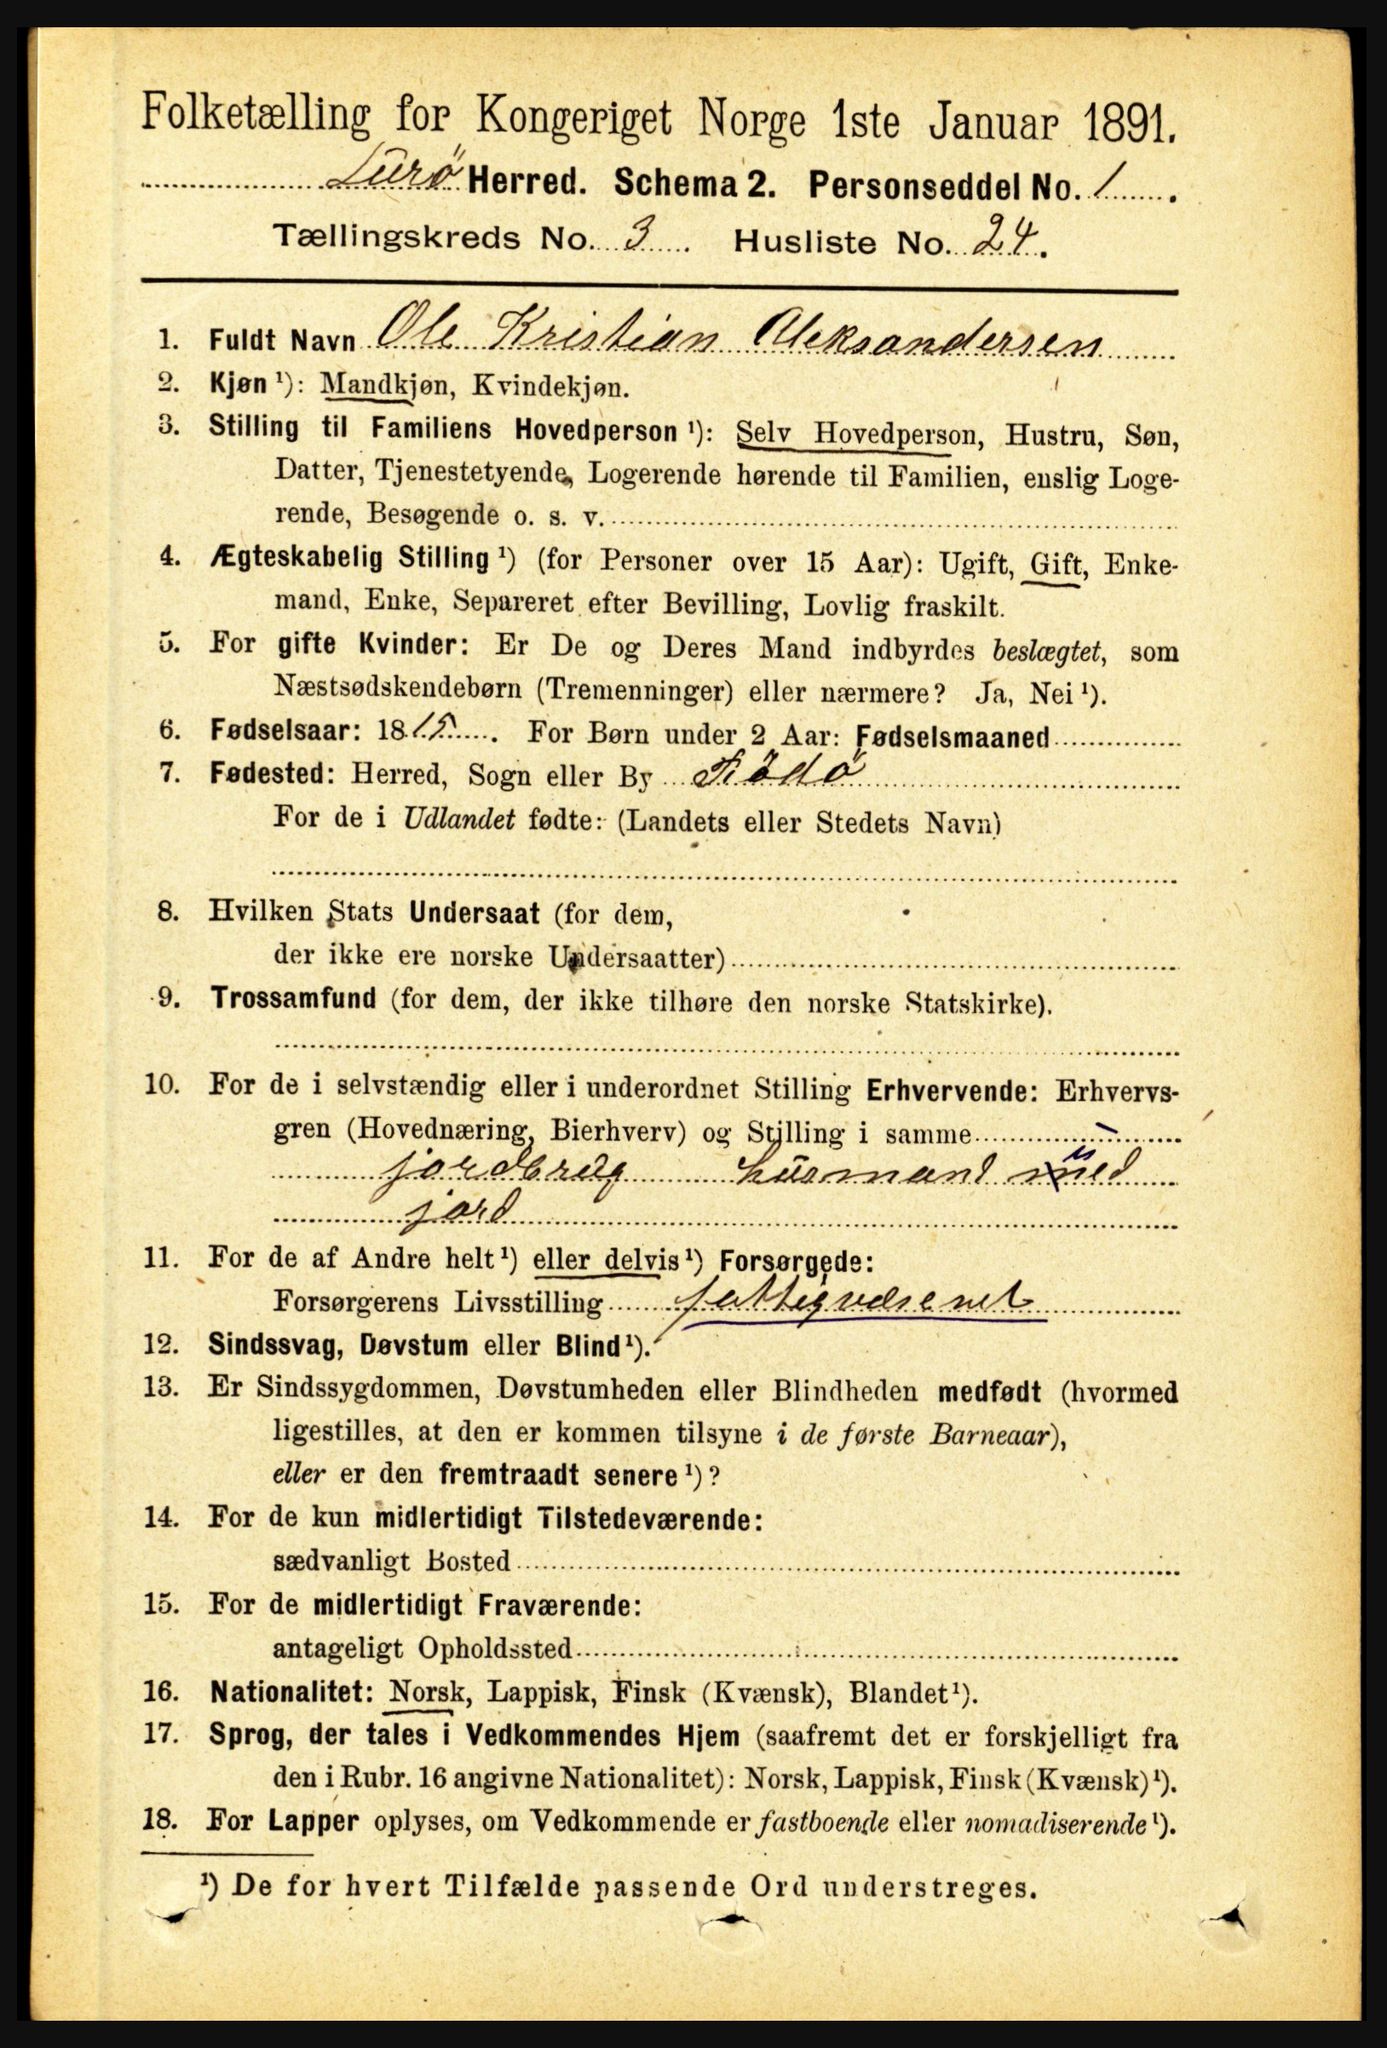 Folketælling for Kongeriget Norge 1ste Januar 1891.
Lurø Herred. Schema 2. Personseddel No. 1.
Tællingskreds No. 3. Husliste No. 24.
1. Fuldt Navn Ole Kristian Aleksandersen
2. Kjøn ¹): Mandkjøn, Kvindekjøn.
3. Stilling til Familiens Hovedperson ¹): Selv Hovedperson, Hustru, Søn,
Datter, Tjenestetyende, Logerende hørende til Familien, enslig Loge-
rende, Besøgende o. s. v.
4. Ægteskabelig Stilling ¹) (for Personer over 15 Aar): Ugift, Gift, Enke-
mand, Enke, Separeret efter Bevilling, Lovlig fraskilt.
5. For gifte Kvinder: Er De og Deres Mand indbyrdes beslægtet, som
Næstsødskendebørn (Tremenninger) eller nærmere? Ja, Nei ¹).
6. Fødselsaar: 1815. For Børn under 2 Aar: Fødselsmaaned
7. Fødested: Herred, Sogn eller By Rödö
For de i Udlandet fødte: (Landets eller Stedets Navn)
8. Hvilken Stats Undersaat (for dem,
der ikke ere norske Undersaatter)
9. Trossamfund (for dem, der ikke tilhøre den norske Statskirke).
10. For de i selvstændig eller i underordnet Stilling Erhvervende: Erhvervs-
gren (Hovednæring, Bierhverv) og Stilling i samme
jordbrug husmand med
jord
11. For de af Andre helt ¹) eller delvis ¹) Forsørgede:
Forsørgerens Livsstilling fattigvæsenet
12. Sindssvag, Døvstum eller Blind ¹).
13. Er Sindssygdommen, Døvstumheden eller Blindheden medfødt (hvormed
ligestilles, at den er kommen tilsyne i de første Barneaar),
eller er den fremtraadt senere ¹)?
14. For de kun midlertidigt Tilstedeværende:
sædvanligt Bosted
15. For de midlertidigt Fraværende:
antageligt Opholdssted
16. Nationalitet: Norsk, Lappisk, Finsk (Kvænsk), Blandet ¹).
17. Sprog, der tales i Vedkommendes Hjem (saafremt det er forskjelligt fra
den i Rubr. 16 angivne Nationalitet): Norsk, Lappisk, Finsk (Kvænsk) ¹).
18. For Lapper oplyses, om Vedkommende er fastboende eller nomadiserende ¹).
¹) De for hvert Tilfælde passende Ord understreges.